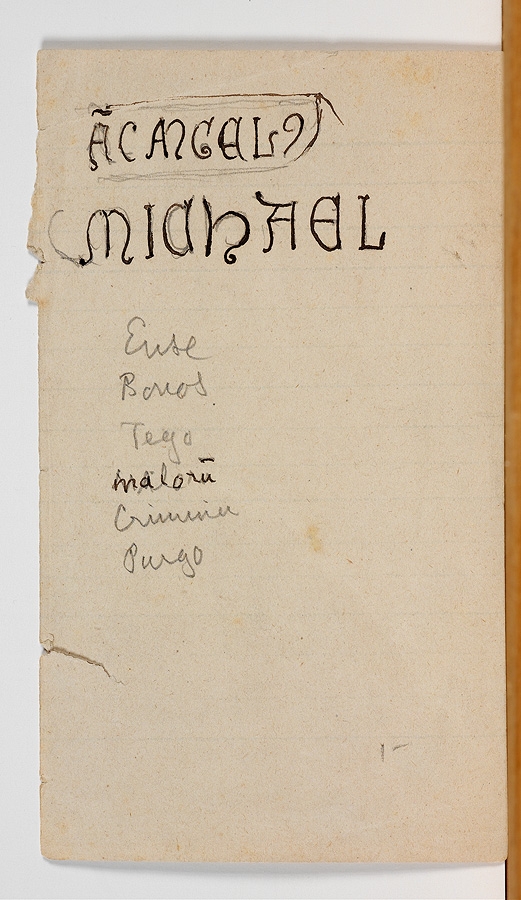 ÃCANGELꝰ
MICHAEL
Ense
Bonos
Tego
malorū
Crimina
Purgo
1-